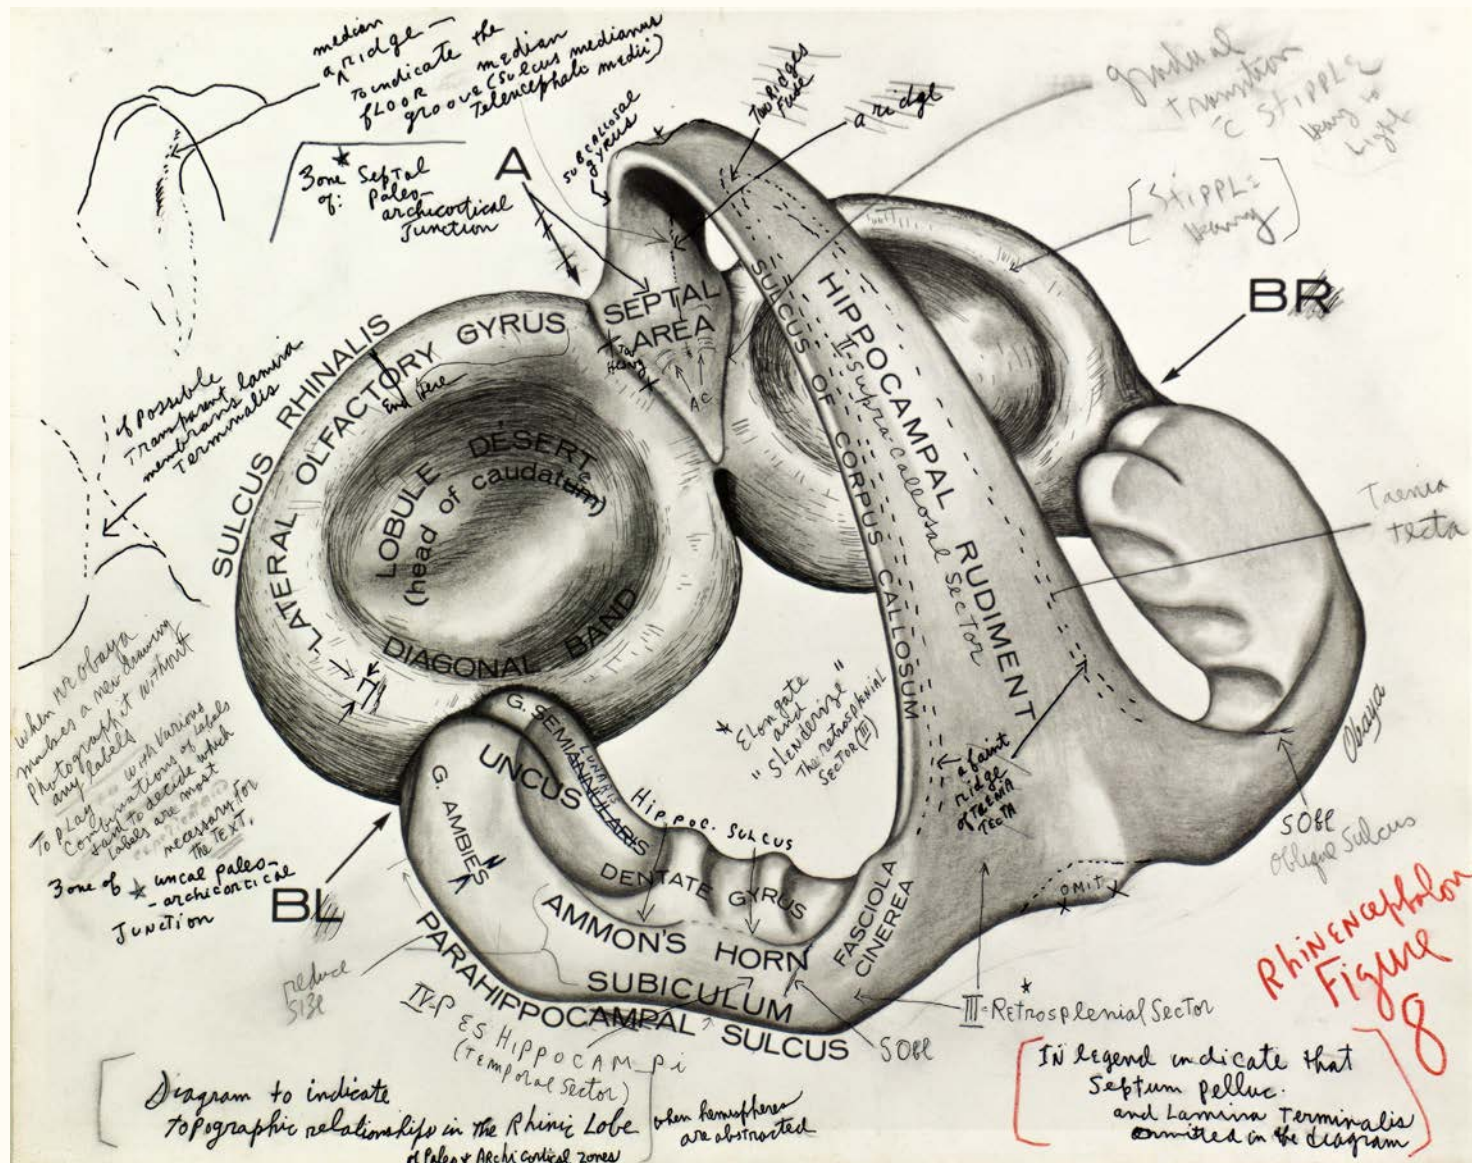 median
a ridge —
to indicate the
floor median
groove (sulcus medianus
Telencephali medii)
3one ★ Septal
of: Paleo-
archicortical
Junction
A
SUBCALLOSAL
gyrus
Two Ridges
Fuse
a ridge
gradual
transition
c̄ STIPPLE
Heavy to
Light
[STIPPLE
Heavy]
BR
SEPTAL
AREA
Too
Heavy
AC
SULCUS RHINALIS
LATERAL OLFACTORY GYRUS
End Here
LOBULE DÉSERT
(head of caudatum)
e
DIAGONAL BAND
SULCUS OF CORPUS CALLOSUM
HIPPOCAMPAL RUDIMENT
II-Supracallosal Sector
Taenia
tecta
if possible
transparent lamina
membrans
Terminalis
when Mr Obaya
makes a new drawing
Photograph it without
any labels
To play with various
Combinations of labels
to decide which
labels are most
necessary for
the TEXT.
3one of ★ uncal paleo-
-archicortical
Junction
BL
G. SEMIANNULARIS
LUNARIS
UNCUS
G. AMBIES
N
Hippoc. Sulcus
DENTATE GYRUS
AMMON'S HORN
SUBICULUM
FASCIOLA
CINEREA
PARAHIPPOCAMPAL SULCUS
reduce
size
IV-PES HIPPOCAMPi
(Temporal Sector)
* Elongate
and
"Slenderize"
The retrosplenial
SECTOR (III)
a faint
ridge
of TAENIA
TECTA
Obaya
SOBL
Oblique Sulcus
OMIT
III = Retrosplenial Sector
*
SOBL
Rhinencephalon
Figure
8
[Diagram to indicate
topographic relationships in the Rhinic Lobe
of Paleo & Archi Cortical zones
when hemispheres
are abstracted
[IN legend indicate that
Septum Pelluc.
and Lamina Terminalis
ommitted in the diagram]